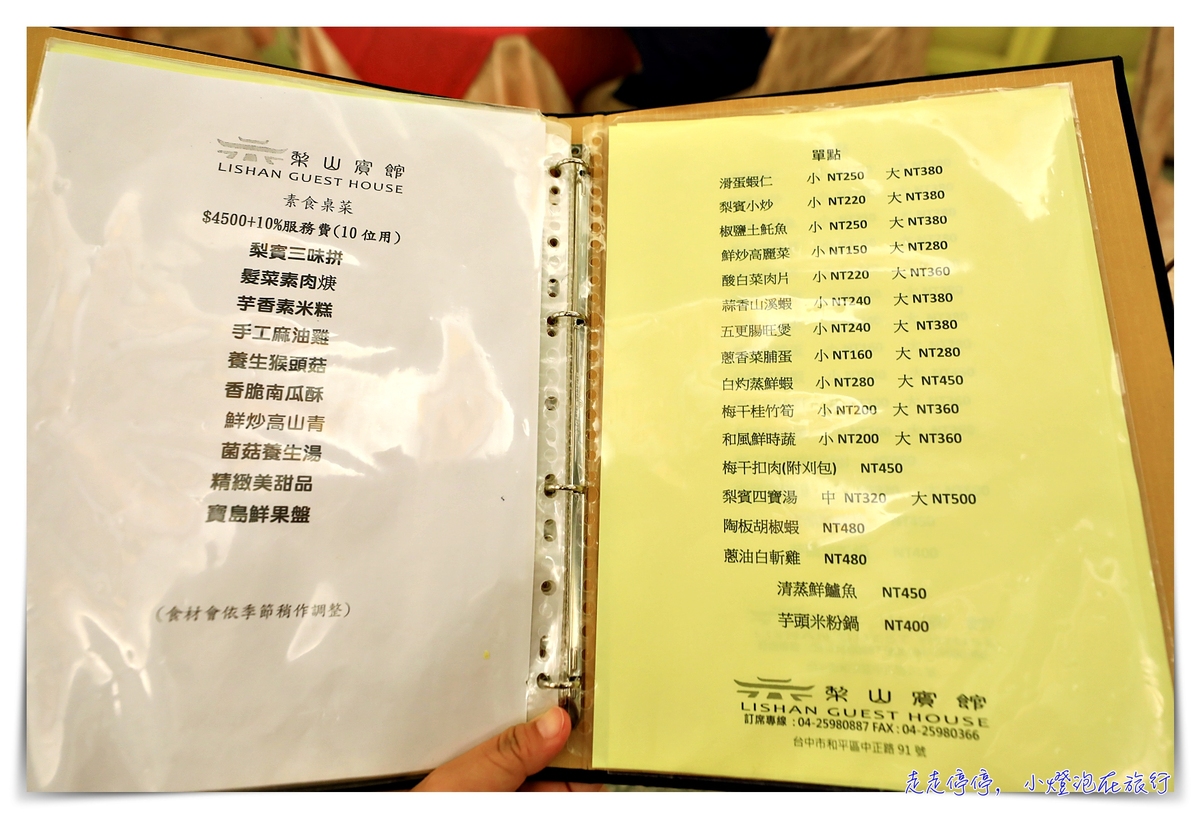 梨山賓館
LISHAN GUEST HOUSE
素食桌菜
$4500+10%服務費(10 位用)
梨賓三味拼
髮菜素肉焿
芋香素米糕
手工麻油雞
養生猴頭菇
香脆南瓜酥
鮮炒高山青
菌菇養生湯
精緻美甜品
寶島鮮果盤
(食材會依季節稍作調整)
單點
滑蛋蝦仁 小 NT250 大 NT380
梨賓小炒 小 NT220 大 NT380
椒鹽土魠魚 小 NT250 大 NT380
鮮炒高麗菜 小 NT150 大 NT280
酸白菜肉片 小 NT220 大 NT360
蒜香山溪蝦 小 NT240 大 NT380
五更腸旺煲 小 NT240 大 NT380
蔥香菜脯蛋 小 NT160 大 NT280
白灼蒸鮮蝦 小 NT280 大 NT450
梅干桂竹筍 小 NT200 大 NT360
和風鮮時蔬 小 NT200 大 NT360
梅干扣肉(附刈包) NT450
梨賓四寶湯 中 NT320 大 NT500
陶板胡椒蝦 NT480
蔥油白斬雞 NT480
清蒸鮮鱸魚 NT450
芋頭米粉鍋 NT400
梨山賓館
LISHAN GUEST HOUSE
訂席專線：04-25980887 FAX：04-25980366
台中市和平區中正路 91 號
走走停停，小燈泡在旅行